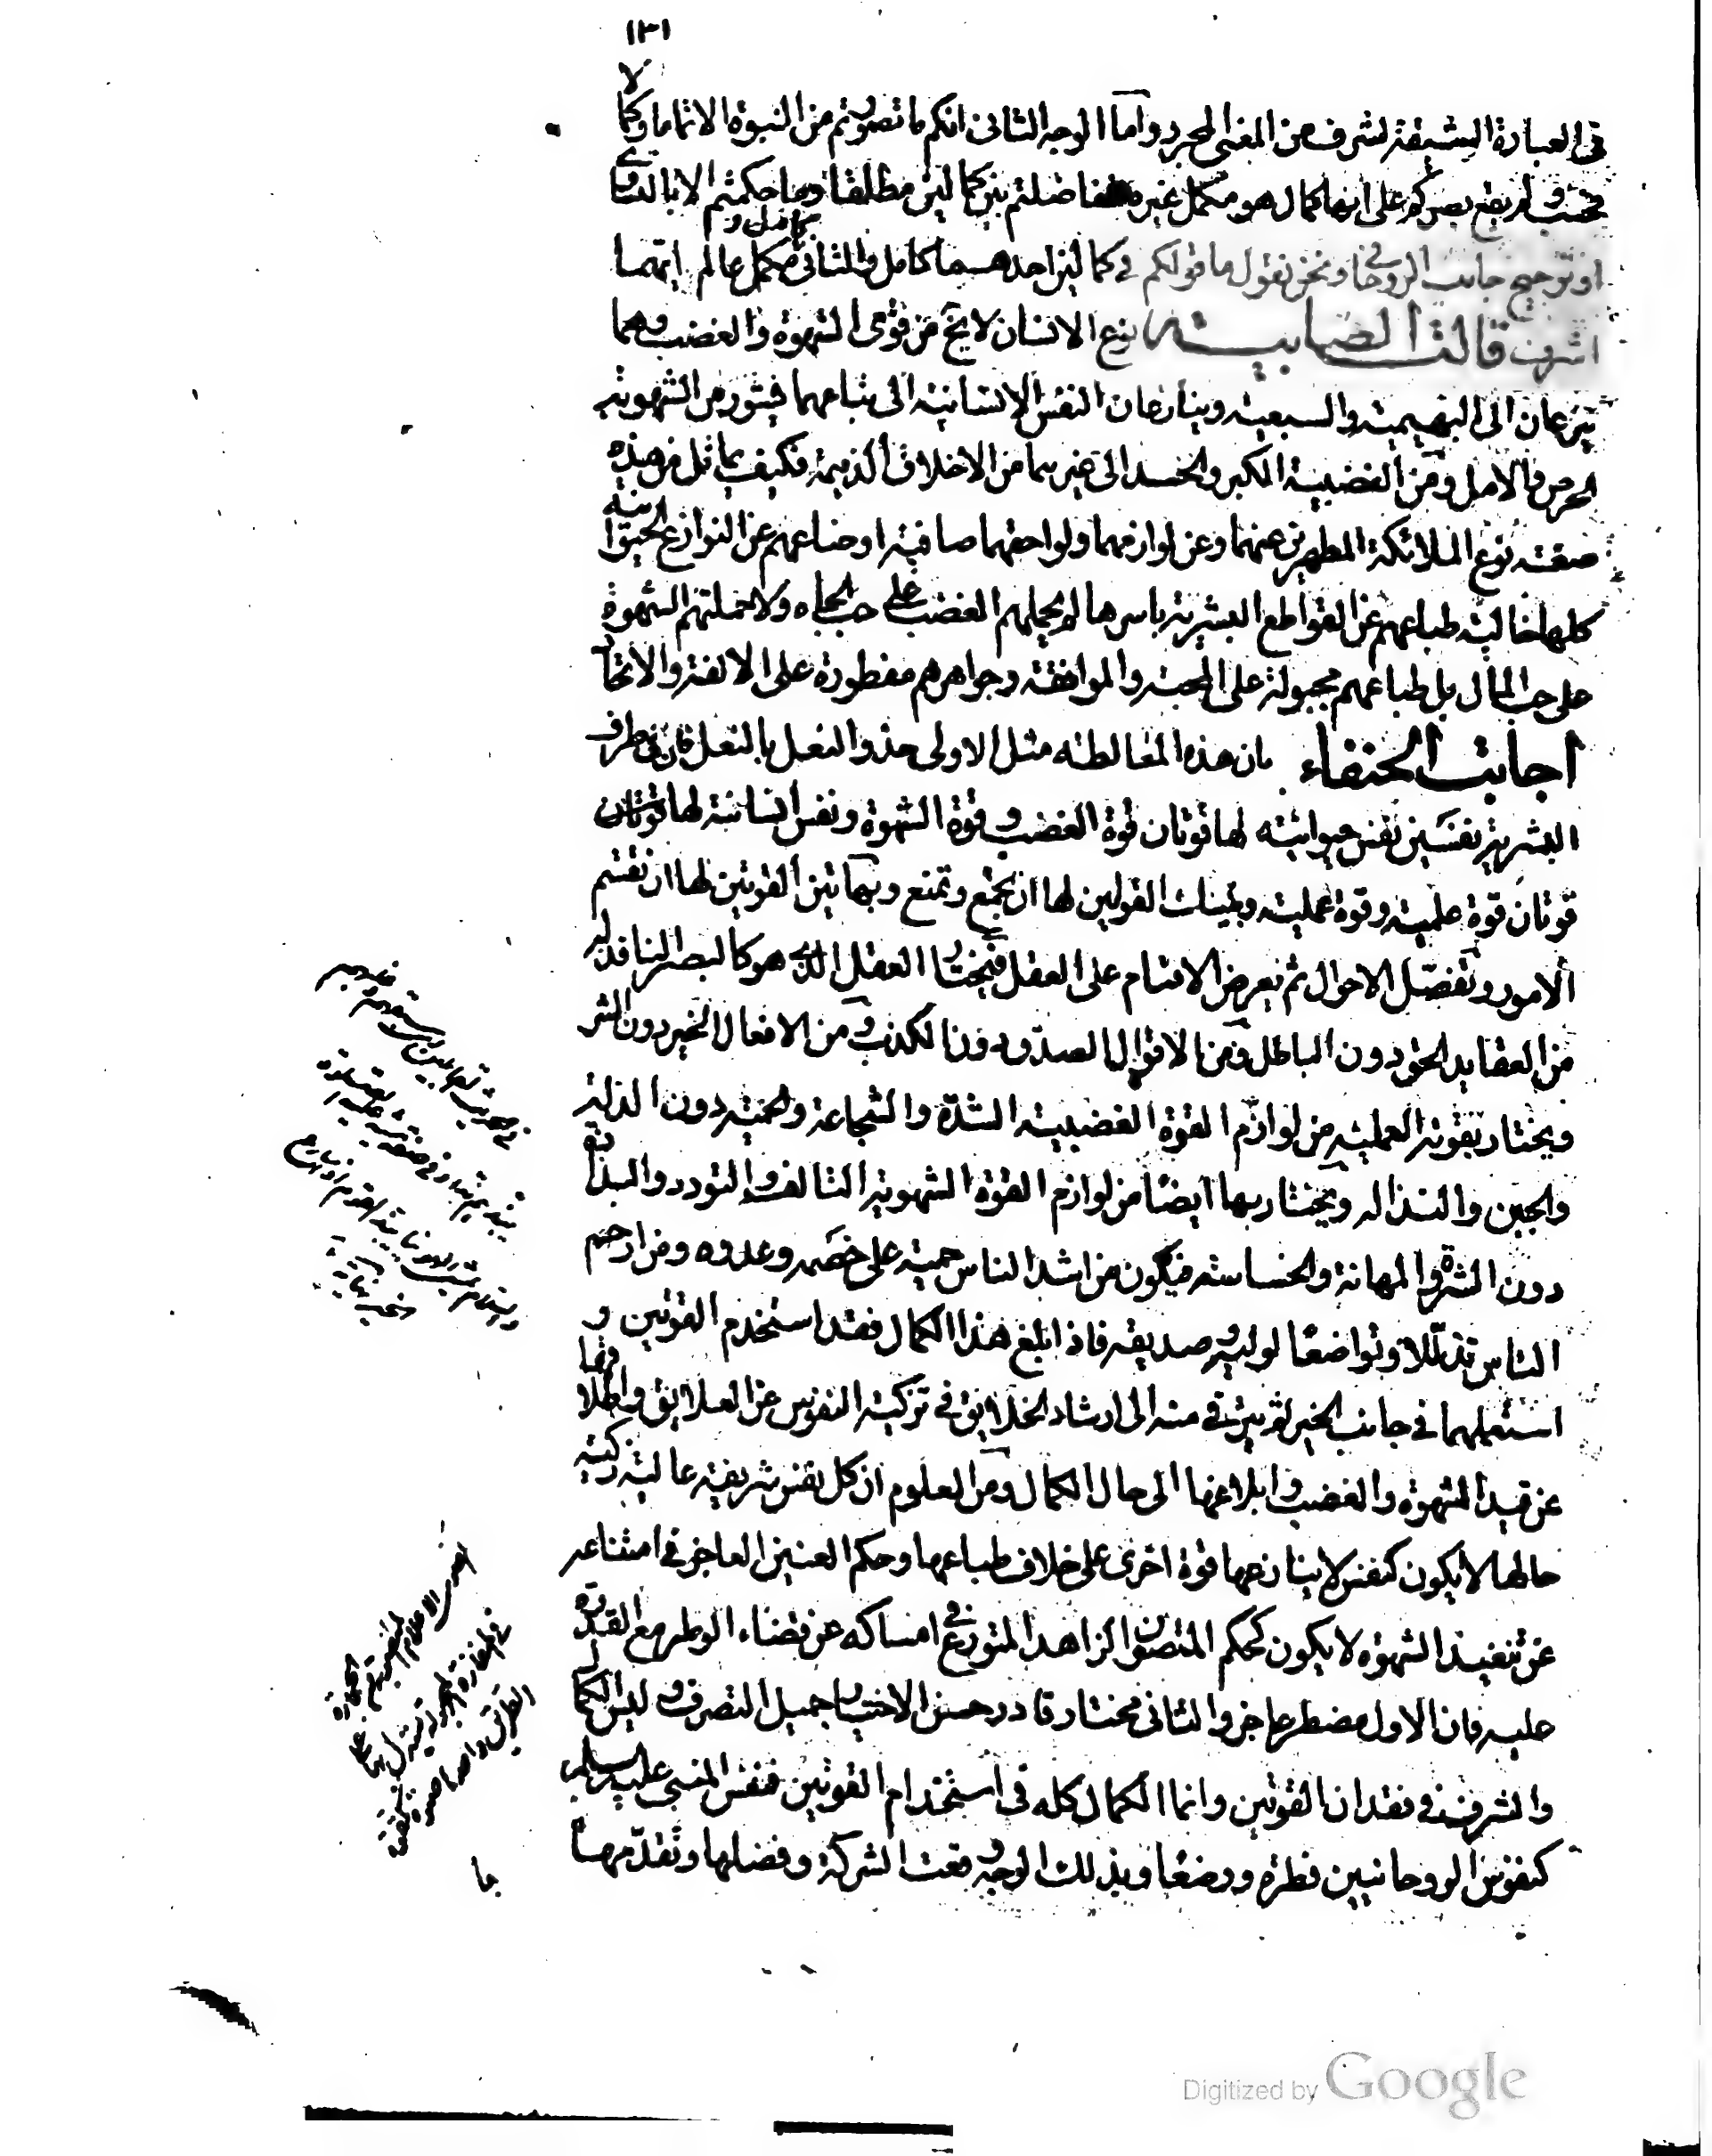 ١٣١
فى العبارة الرشيقة لشرف من المعنى المجرد واما الوجه الثانى انكم ما تصورتم من النبوة الا تماما وكمالا
فحسب ولم يقع بصركم على انها كمال هو مكمل غيره ففاضلتم بين كمالين مطلقا وما حكمتم الا بالتساوى
او ترجيح جانب الروحانى ونحن نقول ما قولكم فى كمالين احدهما كامل والثانى كامل ومكمل عالم ايهما
اشرف قالت الصابية نوع الانسان لا يخ من قوتى الشهوة والغضب وهما
ينزعان الى البهيمية والسبعية وينازعان النفس الانسانية الى طباعهما فيثور من الشهوية
الحرص والامل ومن الغضبية الكبر والحسد الى غيرهما من الاخلاق الذميمة فكيف يماثل من هذه
صفته نوع الملائكة المطهرين عنهما وعن لوازمهما ولواحقهما صافية اوضاعهم عن النوازع الحيوانية
كلها خالية طباعهم عن القواطع البشرية باسرها لم يحملهم الغضب على حب الجاه ولا حملتهم الشهوة
على حب المال بل طباعهم مجبولة على المحبة والموافقة وجواهرهم مفطورة على الالفة والاتحاد
اجابت الحنفاء بان هذه المغالطة مثل الاولى حذو النعل بالنعل فان فى طرف
البشرية نفسين نفس حيوانية لها قوتان قوة الغضب وقوة الشهوة ونفس انسانية لها قوتان
قوتان قوة علمية وقوة عملية وبتينك القوتين لها ان تجمع وتمنع وبهاتين القوتين لها ان تقسم
الامور وتفصل الاحوال ثم تعرض الاقسام على العقل فيختار العقل الذى هو كالبصر النافذ له
من العقايد الحق دون الباطل ومن الاقوال الصدق دون الكذب ومن الافعال الخير دون الشر
ويختار بقوته العملية من لوازم القوة الغضبية الشدة والشجاعة والحمية دون الذلة
والجبن والنذالة ويختار بها ايضا من لوازم القوة الشهوية التالف والتودد والبذاذة
دون الشره والمهانة والخساسة فيكون من اشد الناس حمية على خصمه وعدوه ومن ارحم
الناس تذللا وتواضعا لوليه وصديقه فاذا بلغ هذا الكمال فقد استخدم القوتين و
استعملهما فى جانب الخير ثم يترقى منه الى ارشاد الخلايق فى تزكية النفوس عن العلايق واطلاقها
عن قيد الشهوة والغضب وابلاغها الى حال الكمال ومن المعلوم ان كل نفس شريفة عالية زكية
حالها لا يكون كنفس لا ينازعها قوة اخرى على خلاف طباعها وحكم العنين العاجز فى امتناعه
عن تنفيذ الشهوة لا يكون كحكم المتصون الزاهد المتورع فى امساكه عن قضاء الوطر مع القدرة
عليه فان الاول مضطر عاجز والثانى مختار قادر حسن الاختيار جميل التصرف وليس الكمال
والشرف فى فقدان القوتين وانما الكمال كله فى استخدام القوتين فنفس النبى عليه السلم
كنفوس الروحانيين فطرة ووضعا وبذلك الوجه وقعت الشركة وفضلها وتقدمها
بها
Digitized by Google